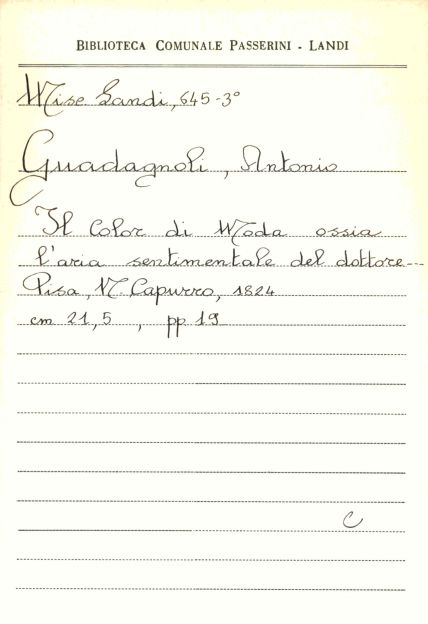 BIBLIOTECA COMUNALE PASSERINI - LANDI
Misc. Landi, 645-3°
Guadagnoli, Antonio
Il Color di Moda ossia
l'aria sentimentale del dottore---
Pisa, N. Capurro, 1824
cm 21,5 , pp 19
C